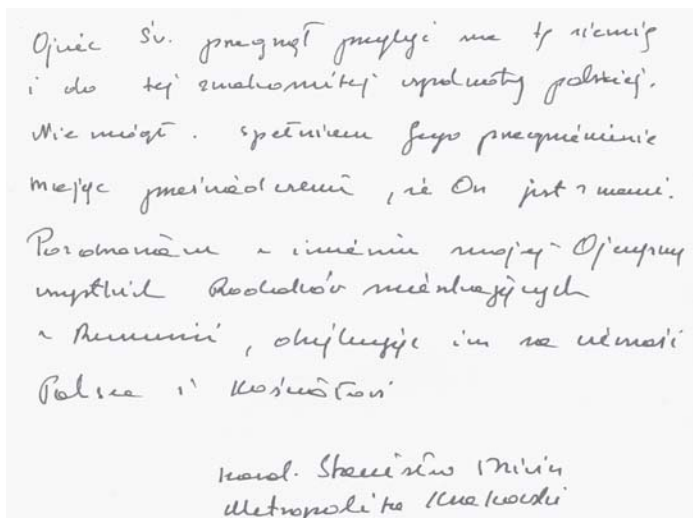 Ojciec Św. pragnął przybyć na tę ziemię
i do tej znakomitej wspólnoty polskiej.
Nie mógł. Spełniam Jego pragnienie
mając przeświadczenie, że On jest z nami.
Pozdrawiam w imieniu mojej Ojczyzny
wszystkich Rodaków mieszkających
w Rumunii, dziękując im za wierność
Polsce i Kościołowi
Kard. Stanisław Dziwisz
Metropolita Krakowski